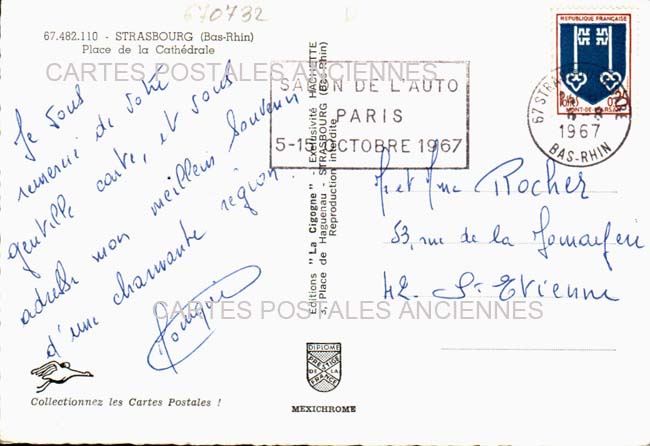 670732
67.482.110 - STRASBOURG (Bas-Rhin)
Place de la Cathédrale
CARTES POSTALES ANCIENNES
Je vous
remercie de votre
gentille carte, et vous
adresse mon meilleur souvenir
d'une charmante région.
Collectionnez les Cartes Postales !
SALON DE L'AUTO
PARIS
5-15 OCTOBRE 1967
REPUBLIQUE FRANÇAISE
MONT-DE-MARSAN
67 STRASBOURG GARE
1967
BAS-RHIN
Editions "La Cigogne" - Exclusivité HACHETTE
3, Place de Haguenau - STRASBOURG (Bas-Rhin)
Reproduction interdite
M et Mme Rocher
53, rue de la
42 St Etienne
CARTES POSTALES ANCIENNES
DIPLOME
PRESTIGE
DE LA
FRANCE
MEXICHROME